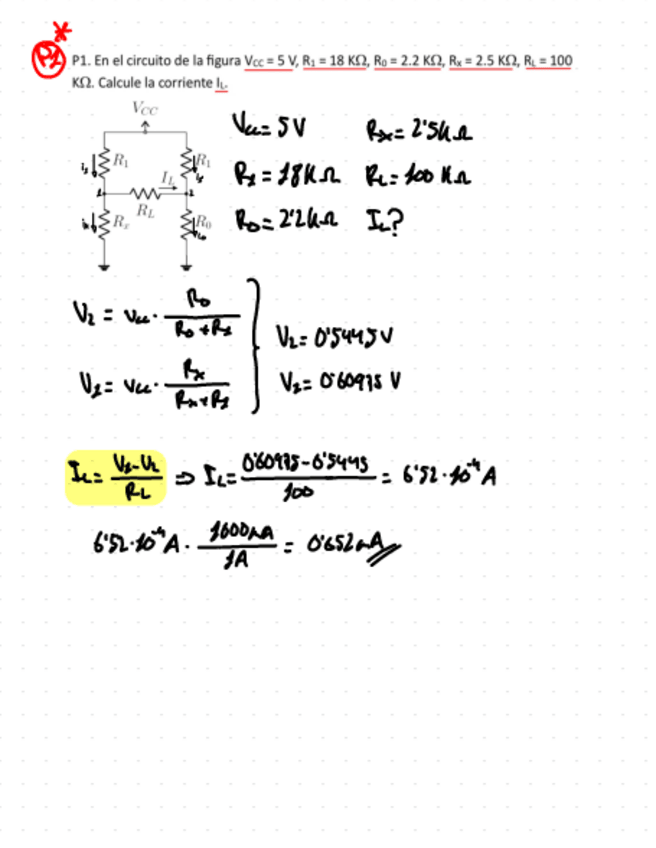 P1
P1. En el circuito de la figura Vcc = 5 V, R1 = 18 KΩ, R0 = 2.2 KΩ, Rx = 2.5 KΩ, RL = 100
KΩ. Calcule la corriente IL.
VCC
R1 R1
IL
RL
Rx R0
Vcc= 5V Rx= 2'5kΩ
R1= 18KΩ RL= 100 KΩ
R0= 2'2kΩ IL?
V2 = Vcc · R0 / (R0 + R1)
V1 = Vcc · Rx / (Rx + R1)
V2= 0'5445V
V1= 0'60975 V
IL= (V1-V2) / RL ⇒ IL= (0'60975-0'5445) / 100 = 6'52·10⁻⁴ A
6'52·10⁻⁴ A · 1000mA / 1A = 0'652mA